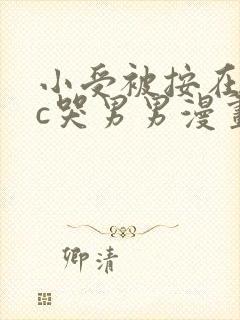 小受被按在
c哭男男漫畫
卿清